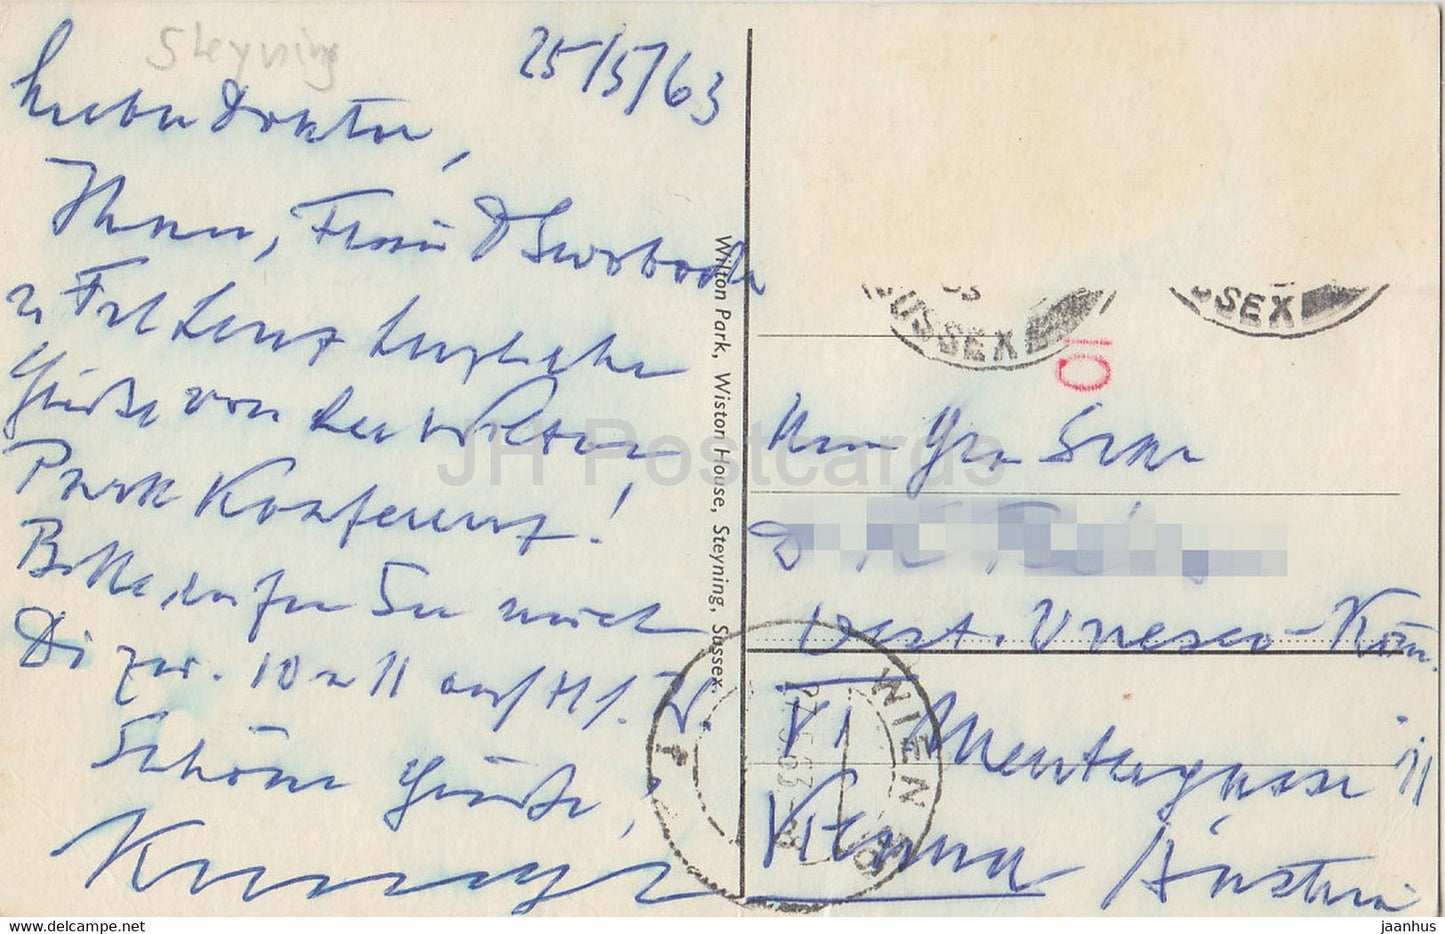 Steyning
25/5/63
Lieber Doktor,
Ihnen, Frau D Swoboda
u Frl Lenz herzliche
Grüße von der Wilton
Park Konferenz!
Bitte, rufen Sie mich
Di zw. 10 u 11 auf
Schöne Grüße,
Wilton Park, Wiston House, Steyning, Sussex.
SUSSEX
SSEX
Herrn Gen Sekr
D
Öest. Unesco-Kom.
VI Mentergasse 11
Vienna
Austria
WIEN
JH Postcards
HIPPOSTCARD.COM
jaanhus